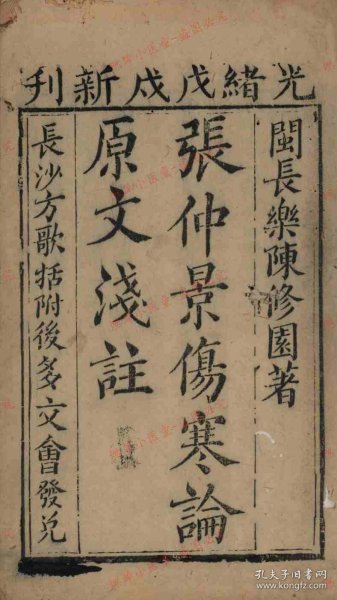 光緒戊戌新刊
閩長樂陳修園著
張仲景傷寒論
原文淺註
長沙方歌括附後多文會發兌
孔夫子旧书网
www.kongfz.com